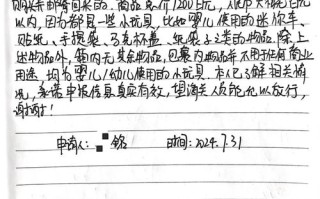 商品总价1200日元，人民币大概百元
以内，因为都是一些小玩具，比如婴儿使用的迷你车、
贴纸、手提袋、马克杯盖、纸袋子之类的物品，除上
述物品外，箱内无其余物品，包裹内物品并不用于任何商业
用途，均为婴儿/幼儿使用的小玩具。本人已了解相关情
况，承诺申报信息真实有效，望海关人员能允以放行，
谢谢！
申请人： 铭 时间：2024.7.31